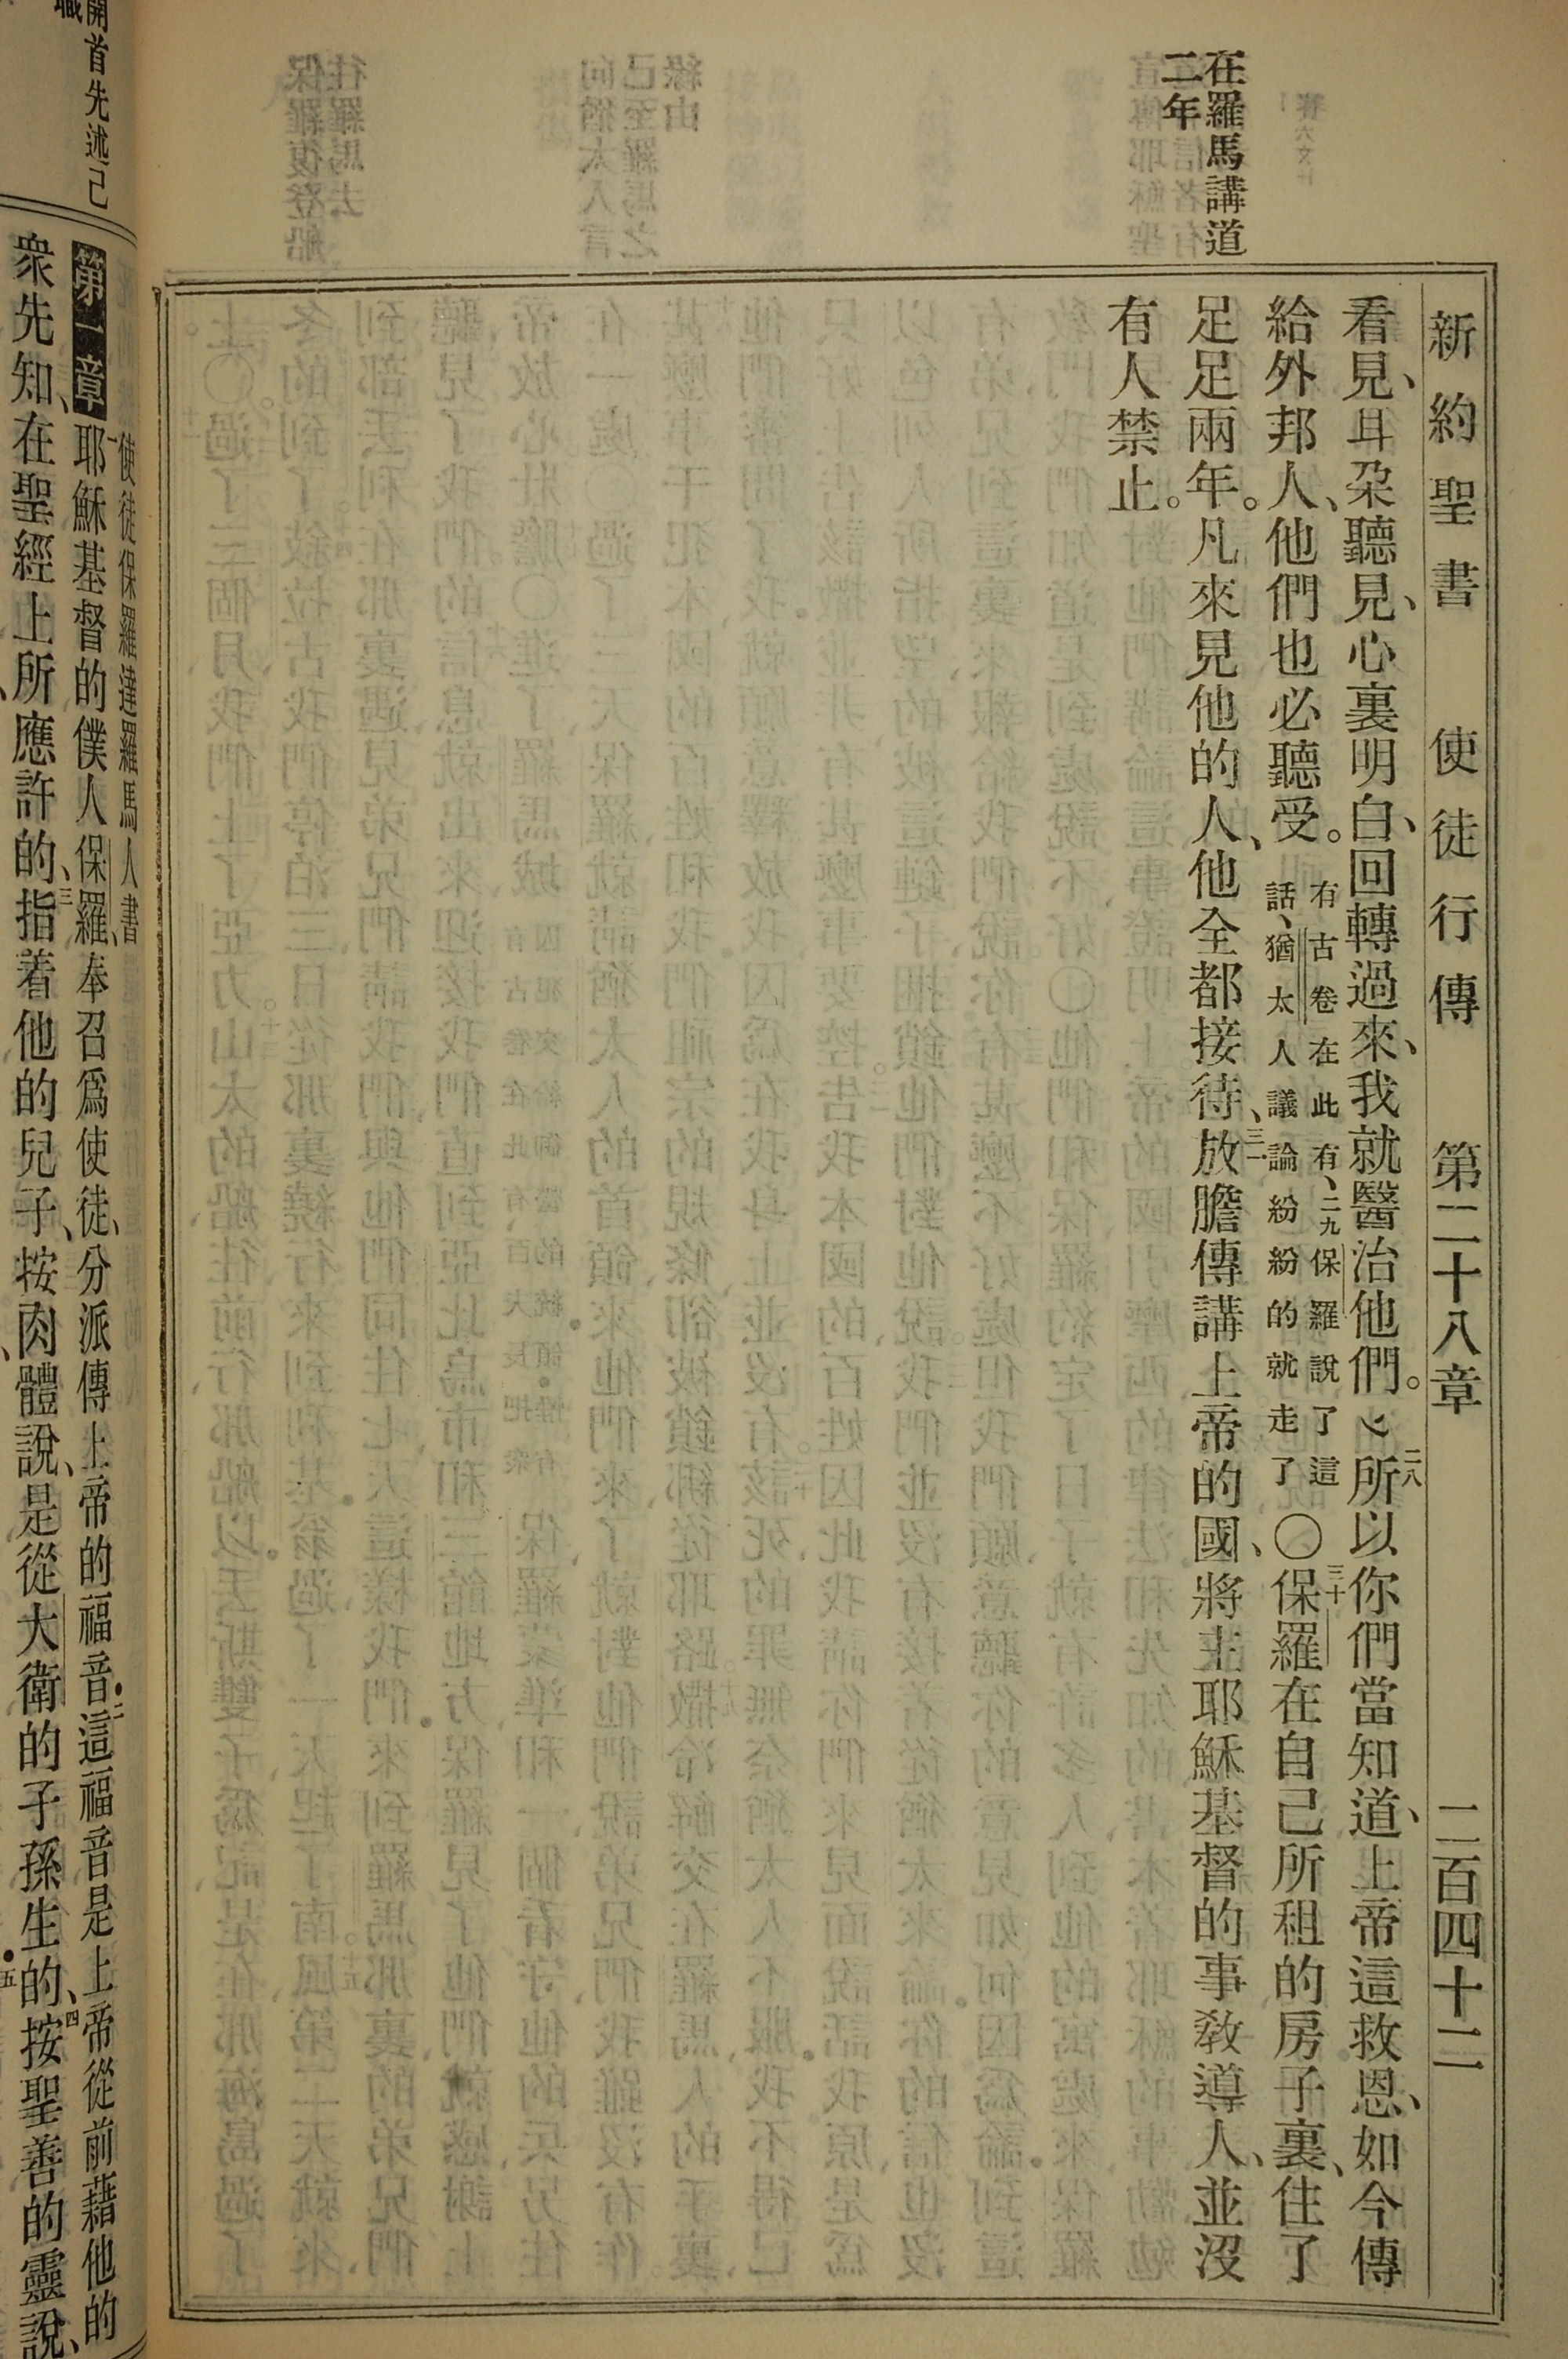 新約聖書 使徒行傳 第二十八章 二百四十二
在羅馬講道
二年
看見、耳朶聽見、心裏明白、回轉過來、我就醫治他們。二八所以你們當知道、上帝這救恩、如今傳
給外邦人、他們也必聽受。有古卷在此有、二九保羅說了這話、猶太人議論紛紛的就走了〇三十保羅在自己所租的房子裏、住了
足足兩年。凡來見他的人、他全都接待、三一放膽傳講上帝的國、將主耶穌基督的事教導人、並沒
有人禁止。
開首先述己
職
使徒保羅達羅馬人書
第一章一耶穌基督的僕人保羅、奉召爲使徒、分派傳上帝的福音•二這福音是上帝從前藉他的
衆先知、在聖經上所應許的、三指着他的兒子、按肉體說、是從大衛的子孫生的、四按聖善的靈說、